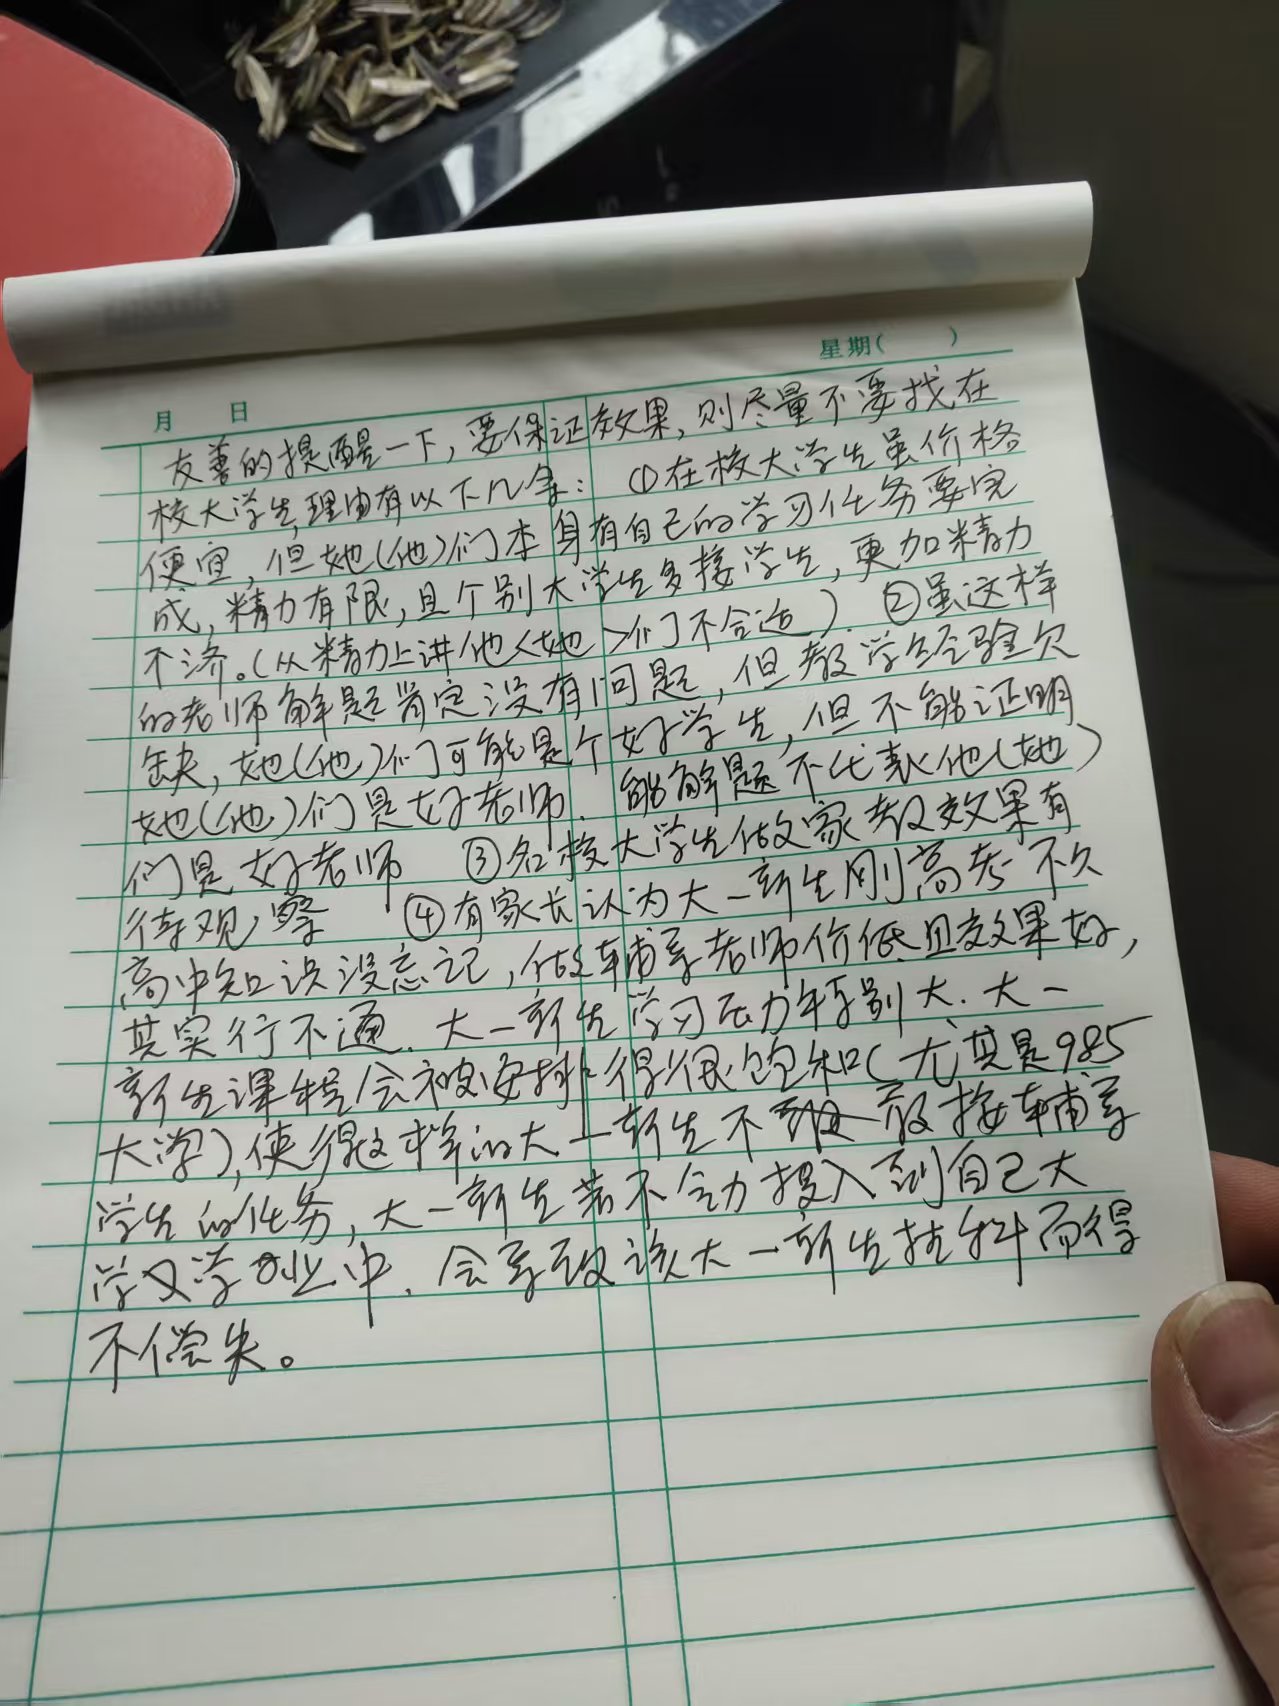 星期(   )
月 日
友善的提醒一下,要保证效果,则尽量不要找在
校大学生,理由有以下几条: ①在校大学生虽价格
便宜,但她(他)们本身有自己的学习任务要完
成,精力有限,且个别大学生多接学生,更加精力
不济。(从精力上讲他<她>们不合适) ②虽这样
的老师解题肯定没有问题,但教学经验欠
缺,她(他)们可能是个好学生,但不能证明
她(他)们是好老师. 能解题不代表他(她)
们是好老师 ③名校大学生做家教效果有
待观察 ④有家长认为大一新生刚高考不久
高中知识没忘记,做辅导老师价低且效果好,
其实行不通. 大一新生学习压力特别大. 大一
新生课程会被安排得很饱和(尤其是985
大学),使得这样的大一新生不敢接辅导
学生的任务,大一新生若不全力投入到自己大
学学业中. 会导致该大一新生挂科而得
不偿失。